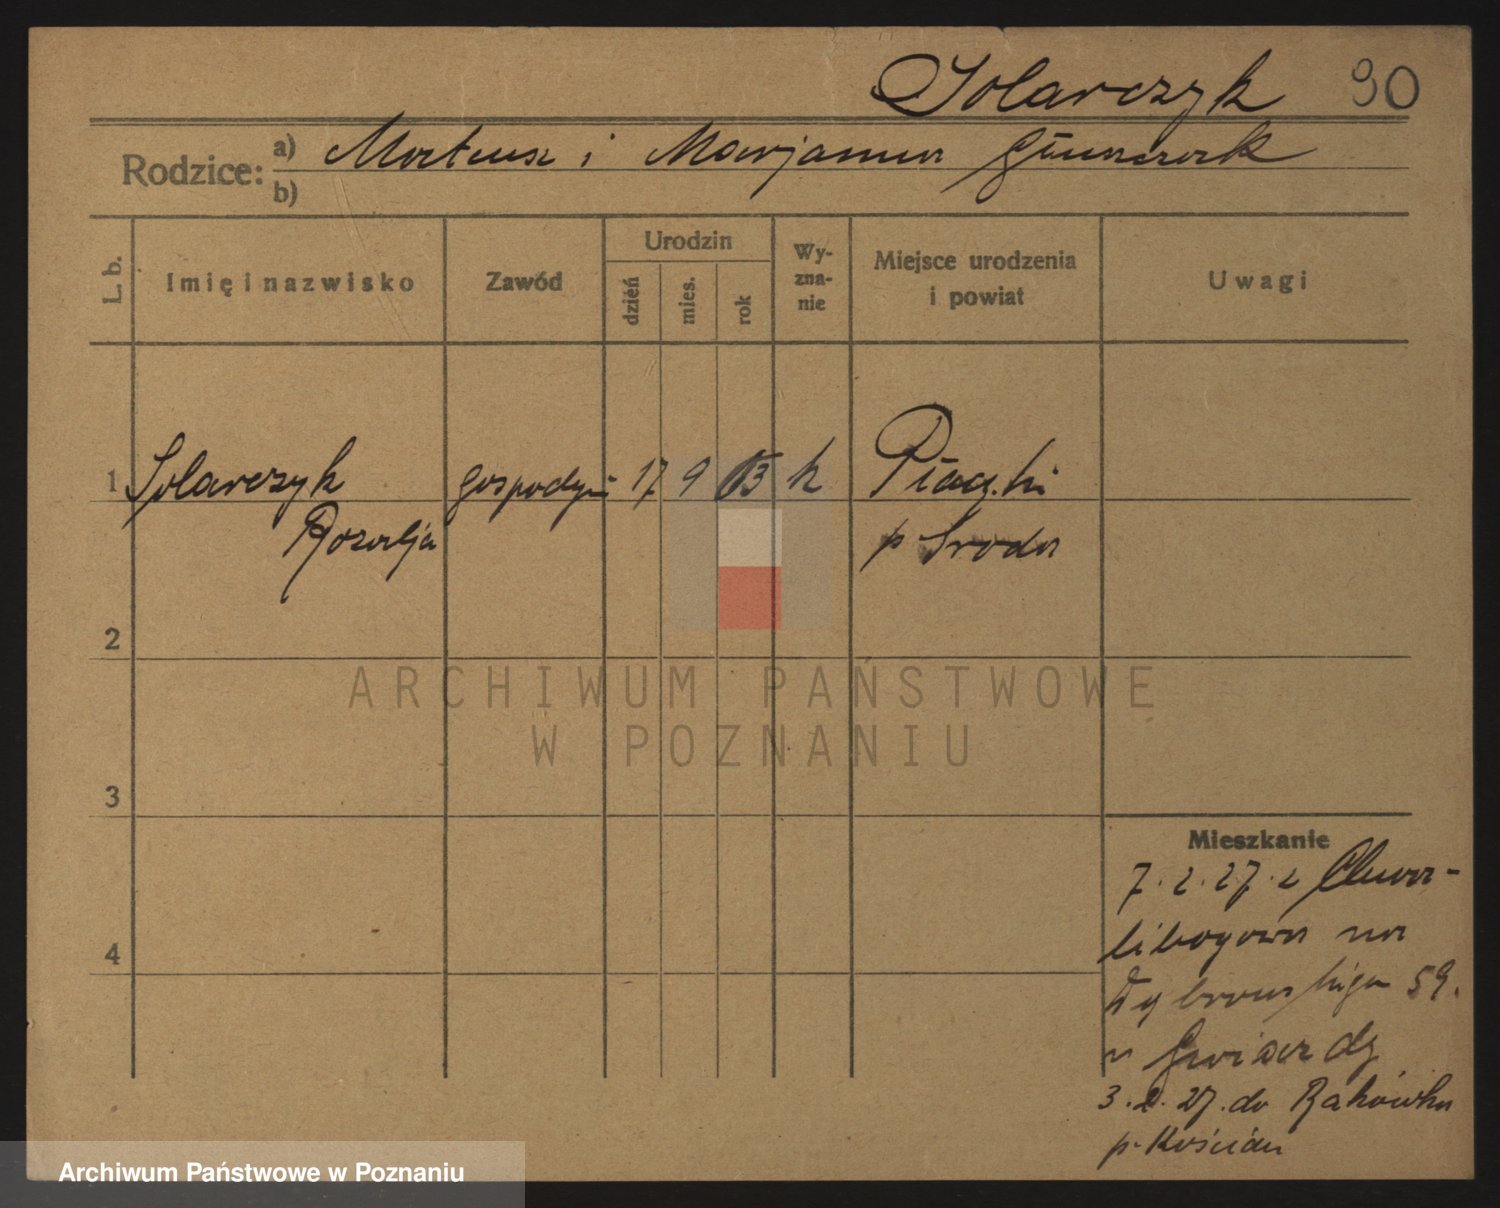 Solarczyk 90
Rodzice: a) Mateusz i Marjanna
b)
L. b. Imię i nazwisko Zawód Urodzin dzień mies. rok Wyznanie Miejsce urodzenia i powiat Uwagi
1 Solarczyk gospodyni 17 9 03 k Piaczki
Rozalja p Sroda
2
ARCHIWUM PAŃSTWOWE
W POZNANIU
3
Mieszkanie
7. 2. 27. z Chwa-
4 libogowa na
Dąbrowskiego 59.
u
3. 2. 27. do Rakówka
p. Kościan
Archiwum Państwowe w Poznaniu